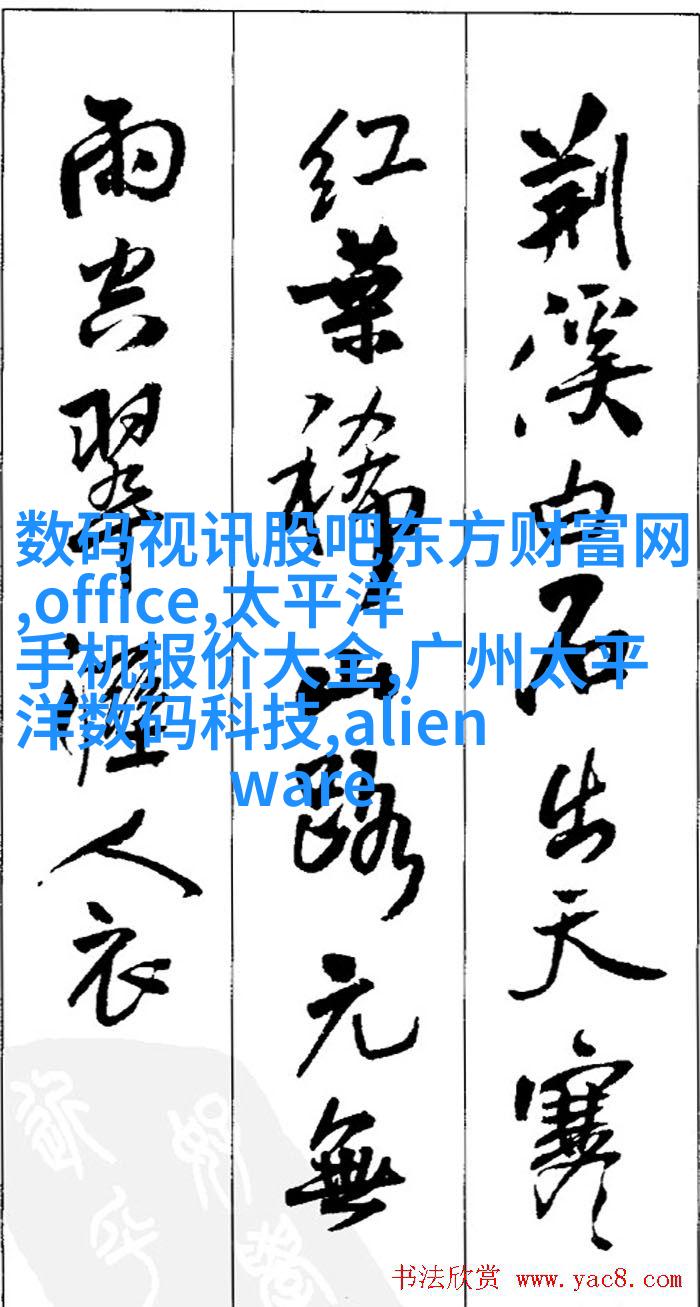 荆溪白石出天寒
红葉稀山路元無
雨空翠溼人衣
数码视讯股吧东方财富网
,office,太平洋
手机报价大全,广州太平
洋数码科技,alien
ware
书法欣赏 www.yac8.com